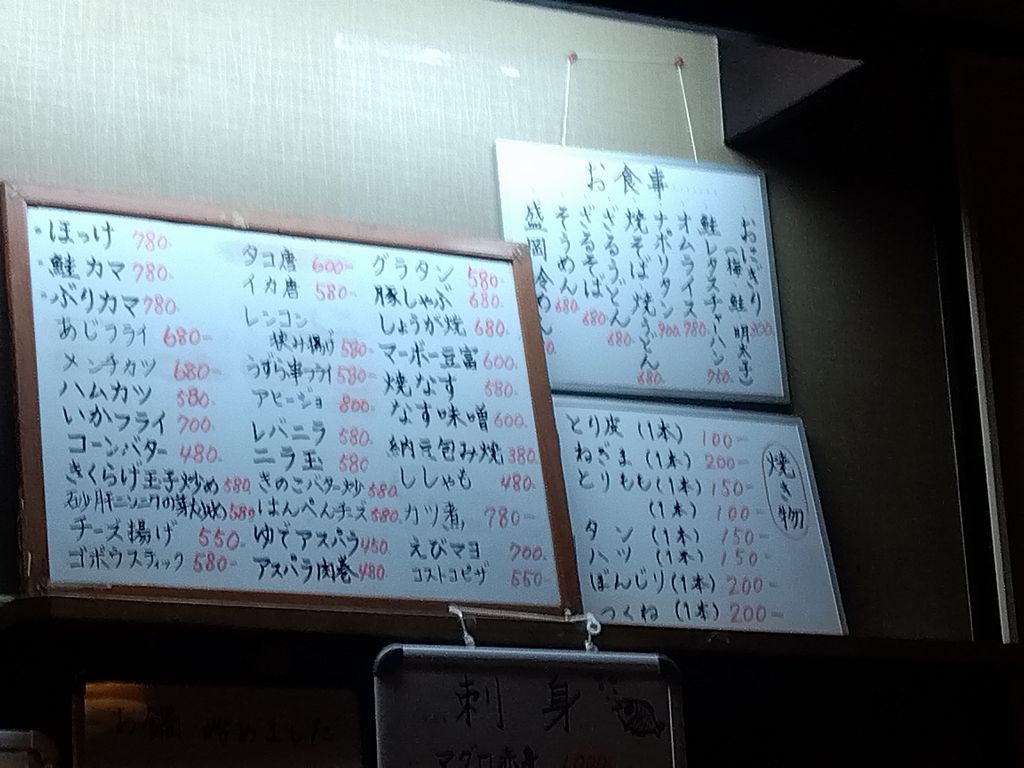 ・ほっけ 780-
・鮭カマ 780-
・ぶりカマ 780-
あじフライ 680-
メンチカツ 680-
ハムカツ 580-
いかフライ 700-
コーンバター 480-
きくらげ玉子炒め 580-
砂肝ニンニクの芽炒め 580-
チーズ揚げ 550-
ゴボウスティック 580-
タコ唐 600-
イカ唐 580-
レンコン
挟み揚げ 580-
うずら串フライ 580-
アヒージョ 800-
レバニラ 580-
ニラ玉 580
きのこバター炒 580-
はんぺんチーズ 580-
ゆでアスパラ 450-
アスパラ肉巻 480-
グラタン 580-
豚しゃぶ 680-
しょうが焼 680-
マーボー豆富 600-
焼なす 580-
なす味噌 600-
納豆包み焼 380-
ししゃも 480-
カツ煮 780-
えびマヨ 700-
コストコピザ 550-
お食事
おにぎり
(梅 鮭 明太子)
鮭レタスチャーハン
オムライス 780-
ナポリタン
焼そば 焼うどん 680-
ざるうどん 680-
ざるそば 680
そうめん 680
盛岡冷めん
焼き物
とり皮 (1本) 100-
ねぎま (1本) 200-
とりもも (1本) 150-
(1本) 100-
タン (1本) 150-
ハツ (1本) 150-
ぼんじり (1本) 200-
つくね (1本) 200-
刺身
マグロ赤身
お鍋始めました